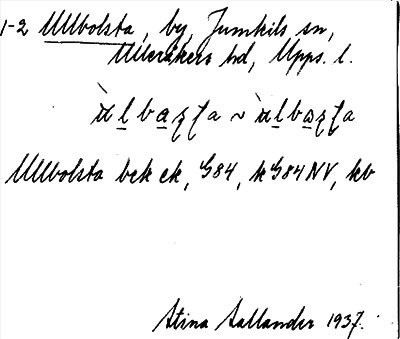 1-2 Ullbolsta, by, Jumkils sn,
Ulleråkers hd, Upps. l.
Ullbolsta bek ek, G84, k G84NV, kb
Stina Sallander 1937.